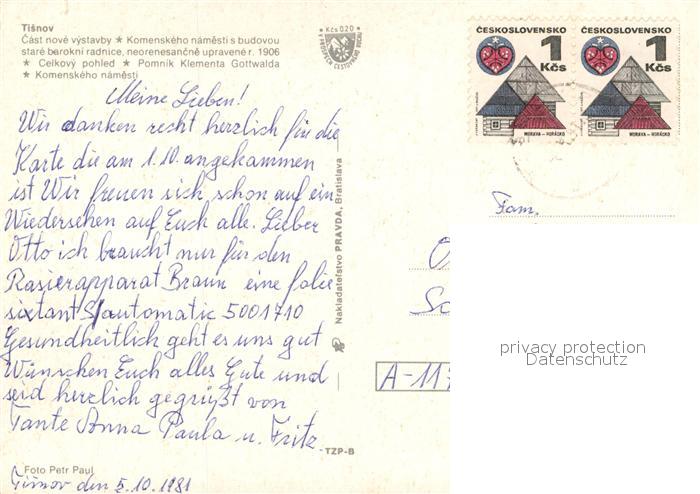 Tišnov
Část nové výstavby ★ Komenského náměstí s budovou
staré barokní radnice, neorenesančně upravené r. 1906
★ Celkový pohled ★ Pomník Klementa Gottwalda
★ Komenského náměstí
Kčs 0,20
ČESKOSLOVENSKO
1
Kčs
MORAVA – HORÁCKO
ČESKOSLOVENSKO
1
Kčs
MORAVA – HORÁCKO
Meine Lieben!
Wir danken recht herzlich für die
Karte die am 1.10. angekommen
ist Wir freuen sich schon auf ein
Wiedersehen auf Euch alle. Lieber
Otto ich braucht nur für den
Rasierapparat Braun eine folie
sixtant S/automatic 5001710
Gesundheitlich geht es uns gut
Wünschen Euch alles Gute und
seid herzlich gegrüßt von
Tante Anna Paula u. Fritz.
Nakladateľstvo PRAVDA, Bratislava
Fam.
A-117
privacy protection
Datenschutz
TZP-B
Foto Petr Paul
Tišnov den 5.10.1981